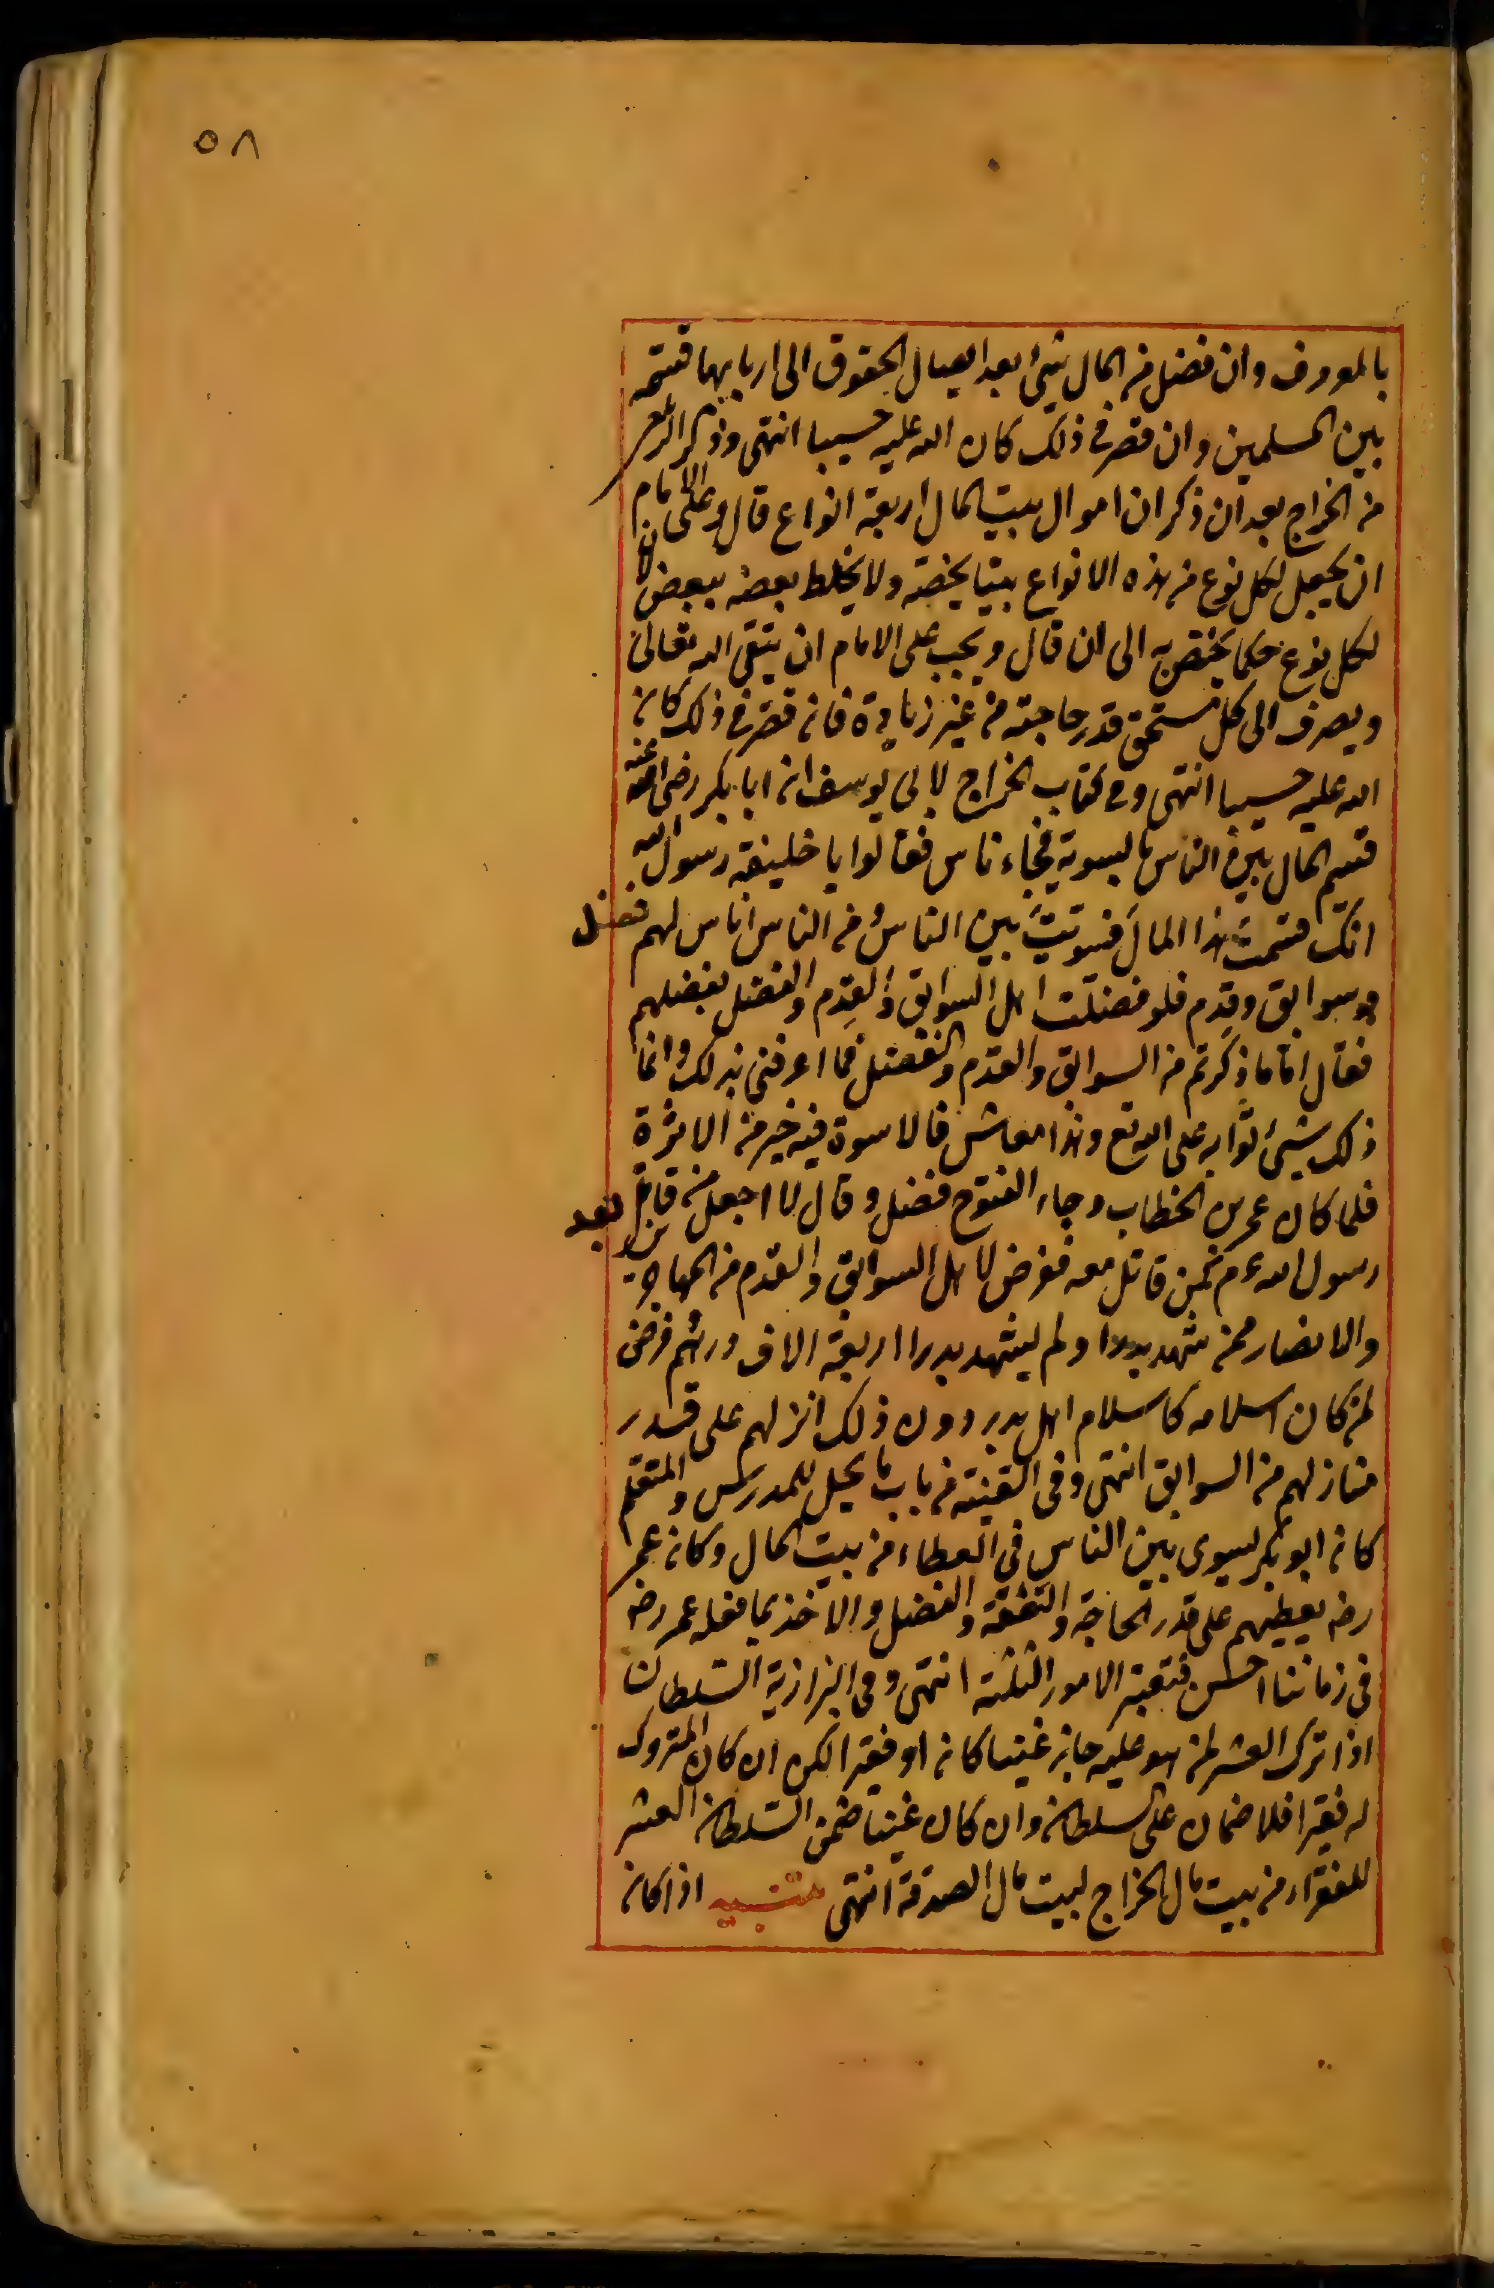 ٥٨
بالمعروف وان فضل من المال شئ بعد ايصال الحقوق الى اربابها قسمه
بين المسلمين وان قصر فى ذلك كان الله عليه حسيبا انتهى وذكر الزيلعى
من الخراج بعد ان ذكر ان اموال بيت المال اربعة انواع قال وعلى الامام
ان يجعل لكل نوع من هذه الانواع بيتا يخصه ولا يخلط بعضه ببعض لان
لكل نوع حكما يختص به الى ان قال ويجب على الامام ان يتقى الله تعالى
ويصرف الى كل مستحق قدر حاجته من غير زيادة فان قصر فى ذلك كان
الله عليه حسيبا انتهى وفى كتاب الخراج لابى يوسف ان ابا بكر رضى الله عنه
قسم المال بين الناس بالسوية فجاء ناس فقالوا يا خليفة رسول الله
انك قسمت هذا المال فسويت بين الناس فمن الناس اناس لهم فضل
وسوابق وقدم فلو فضلت اهل السوابق والقدم والفضل بفضلهم
فقال اما ما ذكرتم من السوابق والقدم والفضل فما اعرفنى بذلك وانما
ذلك شئ ثوابه على الله تع وهذا معاش فالاسوة فيه خير من الاثرة
فلما كان عمر بن الخطاب وجاء الفتوح فضل وقال لا اجعل من قاتل
رسول الله عم كمن قاتل معه ففرض لاهل السوابق والقدم من المهاجرين
والانصار ممن شهد بدرا ولم يشهد بدرا اربعة الاف درهم فرض
لمن كان اسلامه كاسلام اهل بدر دون ذلك انزلهم على قدر
منازلهم من السوابق انتهى وفى القنية من باب ما يحل للمدرس والمتعلم
كان ابو بكر يسوى بين الناس فى العطاء من بيت المال وكان عمر
رضه يعطيهم على قدر الحاجة والتفقه والفضل والاخذ بما فعله عمر رضه
فى زماننا احسن فتعتبر الامور الثلثة انتهى وفى البزازية السلطان
اذا ترك العشر لمن هو عليه جاز غنيا كان او فقيرا لكن ان كان المتروك
له فقيرا فلا ضمان على السلطان وان كان غنيا ضمن السلطان العشر
للفقراء من بيت مال الخراج لبيت مال الصدقة انتهى تنبيه اذا كان